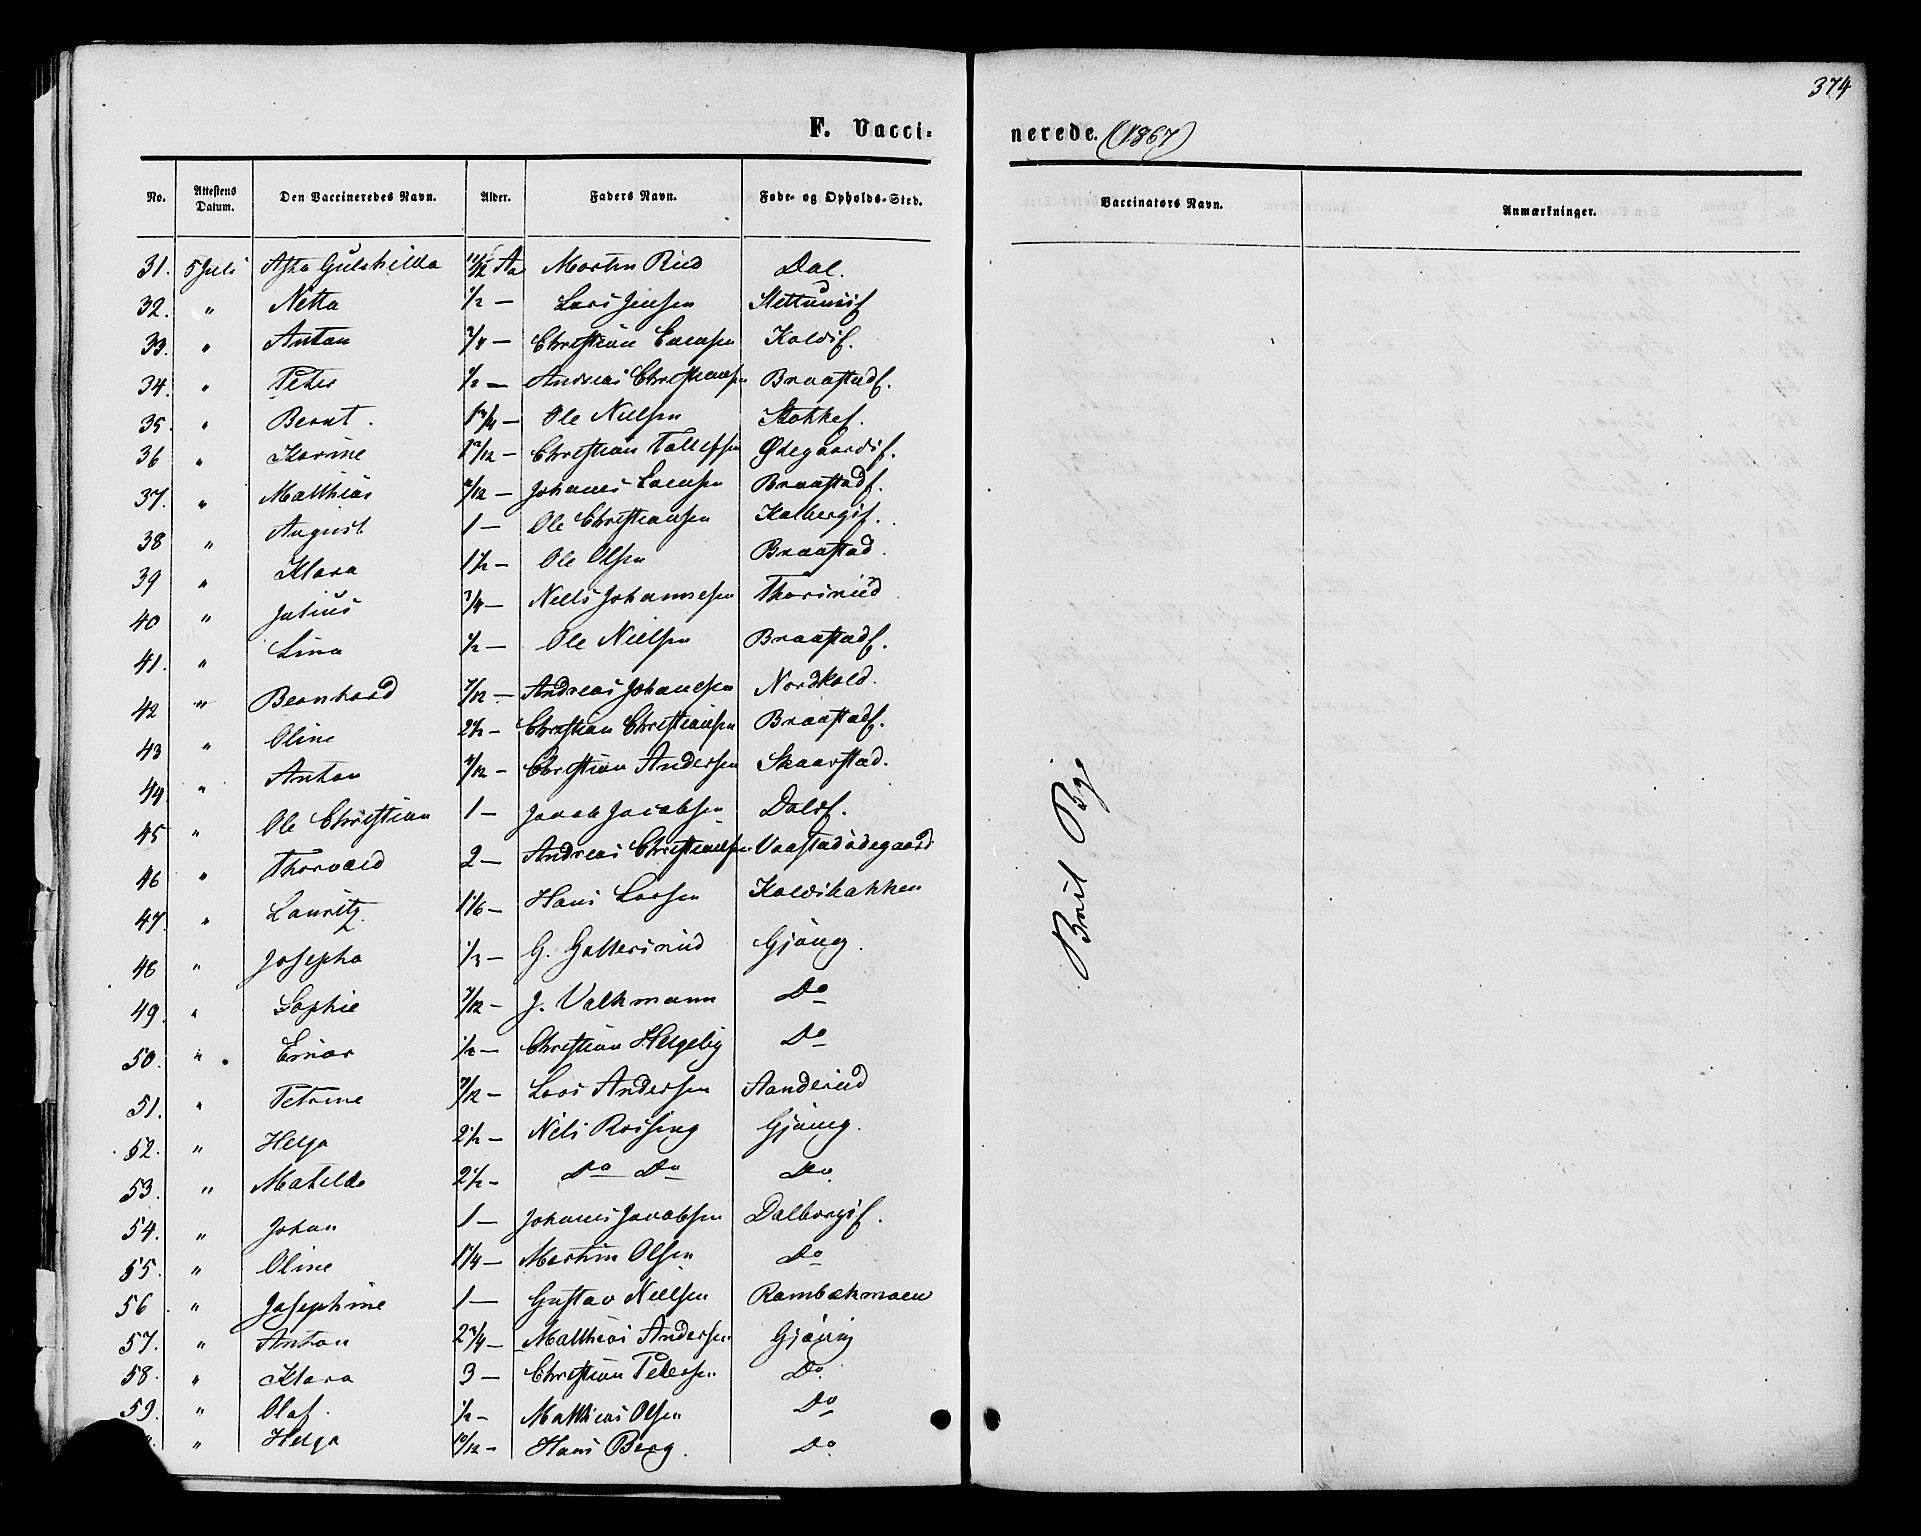 374
F. Vacci-
nerede. (1867)
No. Attestens Datum. Den Vaccineredes Navn. Alder. Faders Navn. Føde- og Opholds-Sted. Vaccinators Navn. Anmærkninger.
31. 5 Juli Asta Gulskilda 11/12 Aa Morten Rud Dal.
32. " Netta 1/2 — Lars Jensen
33. " Anton 3/4 — Christian Koldsf.
34. " Peter 1/2 — Andreas Christiansen Braastadf.
35. " Bernt. 1 3/4 — Ole Nielsen Stokkef.
36 " Karine — Christian Tollefsen Ødegaardsf.
37. " Matthias — Johanes Larsen Braastadf.
38 " August 1 — Ole Christiansen Kolbergsf.
39 " Klara 1 1/2 — Ole Olsen Braastad.
40 " Julius 3/4 — Niels Johannesen Thorsrud
41. " Lina 1/2 — Ole Nielsen Braastadf.
42 " Bernhard 7/12 — Andreas Johanesen Nordkold.
43 " Oline 2 1/2 — Christian Christiansen Braastadf.
44. " Anton — Christian Andersen Skaarstad.
45 " Ole Christian 1 — Jacob Jacobsen Dalsf.
46 " Thorvald 2 — Andreas Christiansen Vaastadødegaard
47. " Lauritz 1 1/6 — Hans Larsen Koldsbakken
48 " Josepha 1/3 — G. Gjøvig.
49. " Sophie 7/12 — J. Volkmann Do
50. " Einar 1/2 — Christian Helgeby Do
51. " Petrine — Lars Andersen Aanderud
52. " Helga 2 1/2 — Nils Rossing Gjøvig.
53. " Matilde 2 1/2 — Do Do Do.
54. " Johan 1 — Johanes Jacobsen Dalborgsf.
55. " Oline 1 1/4 — Martin Olsen Do
56. " Josephine 1 — Gustav Nielsen Rambækmoen
57. " Anton 2 3/4 — Matthias Andersen Gjøvig
58. " Klara 3 — Christian Petersen Do.
59. " Olaf. 1/2 — Matthias Olsen Do
" Helga 10/12 — Hans Berg. Do.